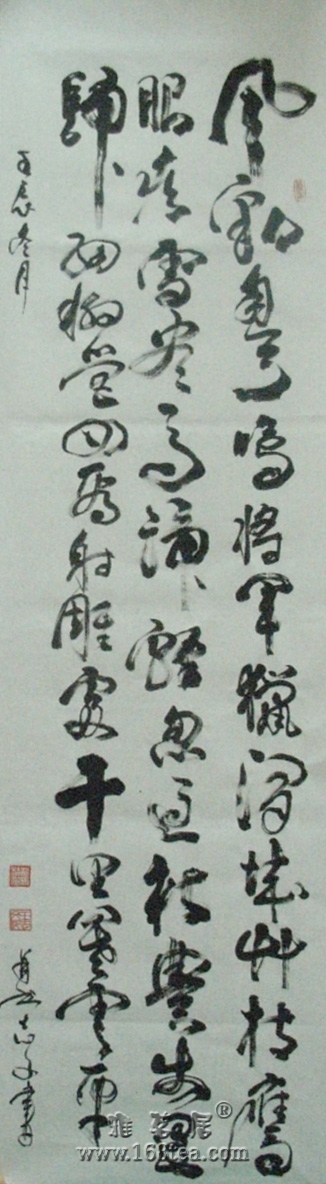 風勁角弓鳴將軍獵渭城艸枯鷹
眼疾雪盡馬蹄輕忽過新豐市還
歸細柳營回看射雕處千里暮雲平
壬辰冬月